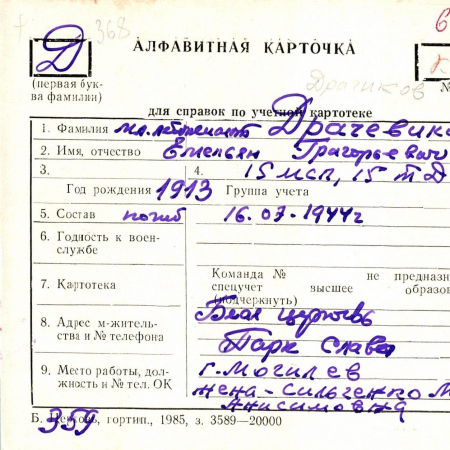 368
АЛФАВИТНАЯ КАРТОЧКА
Д
(первая бук-
ва фамилии)
6
Драчиков
№
для справок по учетной картотеке
1. Фамилия мл. лейтенант Драчевик
2. Имя, отчество Емельян Григорьевич
3. 4. 15 мсп, 15 т Д
Год рождения 1913 Группа учета
5. Состав погиб 16.07-1944г
6. Годность к воен-
службе
Команда № не предназн
7. Картотека спецучет высшее образов
(подчеркнуть)
8. Адрес м-жительс-
ства и № телефона
Белая церковь
Парк Славы
9. Место работы, дол-
жность и № тел. ОК
г. Могилев
жена - Сильченко М
Анисимовна
Б. Церковь, гортип., 1985, з. 3589—20000
359